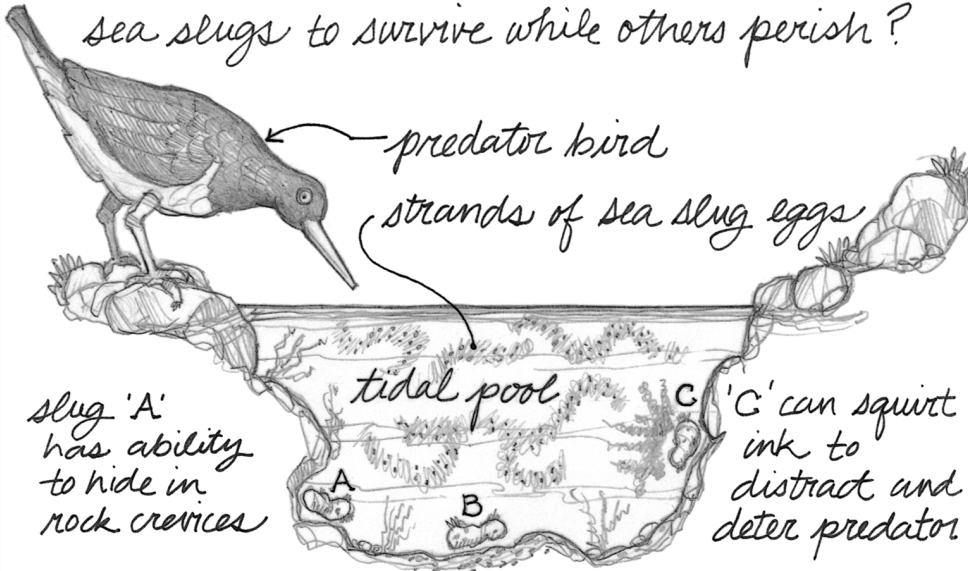 sea slugs to survive while others perish?
predator bird
strands of sea slug eggs
tidal pool
slug 'A'
has ability
to hide in
rock crevices
A
B
C
'C' can squirt
ink to
distract and
deter predator